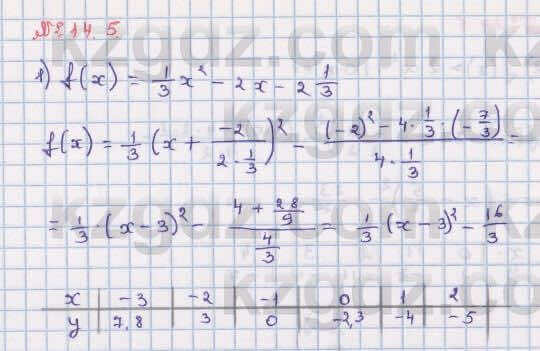 № 14.5
1) f(x) = 1/3 x² - 2x - 2 1/3
f(x) = 1/3 (x + -2/(2·1/3))² - ((-2)² - 4·1/3·(-7/3))/(4·1/3) =
= 1/3·(x-3)² - (4 + 28/9)/(4/3) = 1/3 (x-3)² - 16/3
x | -3 | -2 | -1 | 0 | 1 | 2
y | 7,8 | 3 | 0 | -2,3 | -4 | -5
kzgdz.com